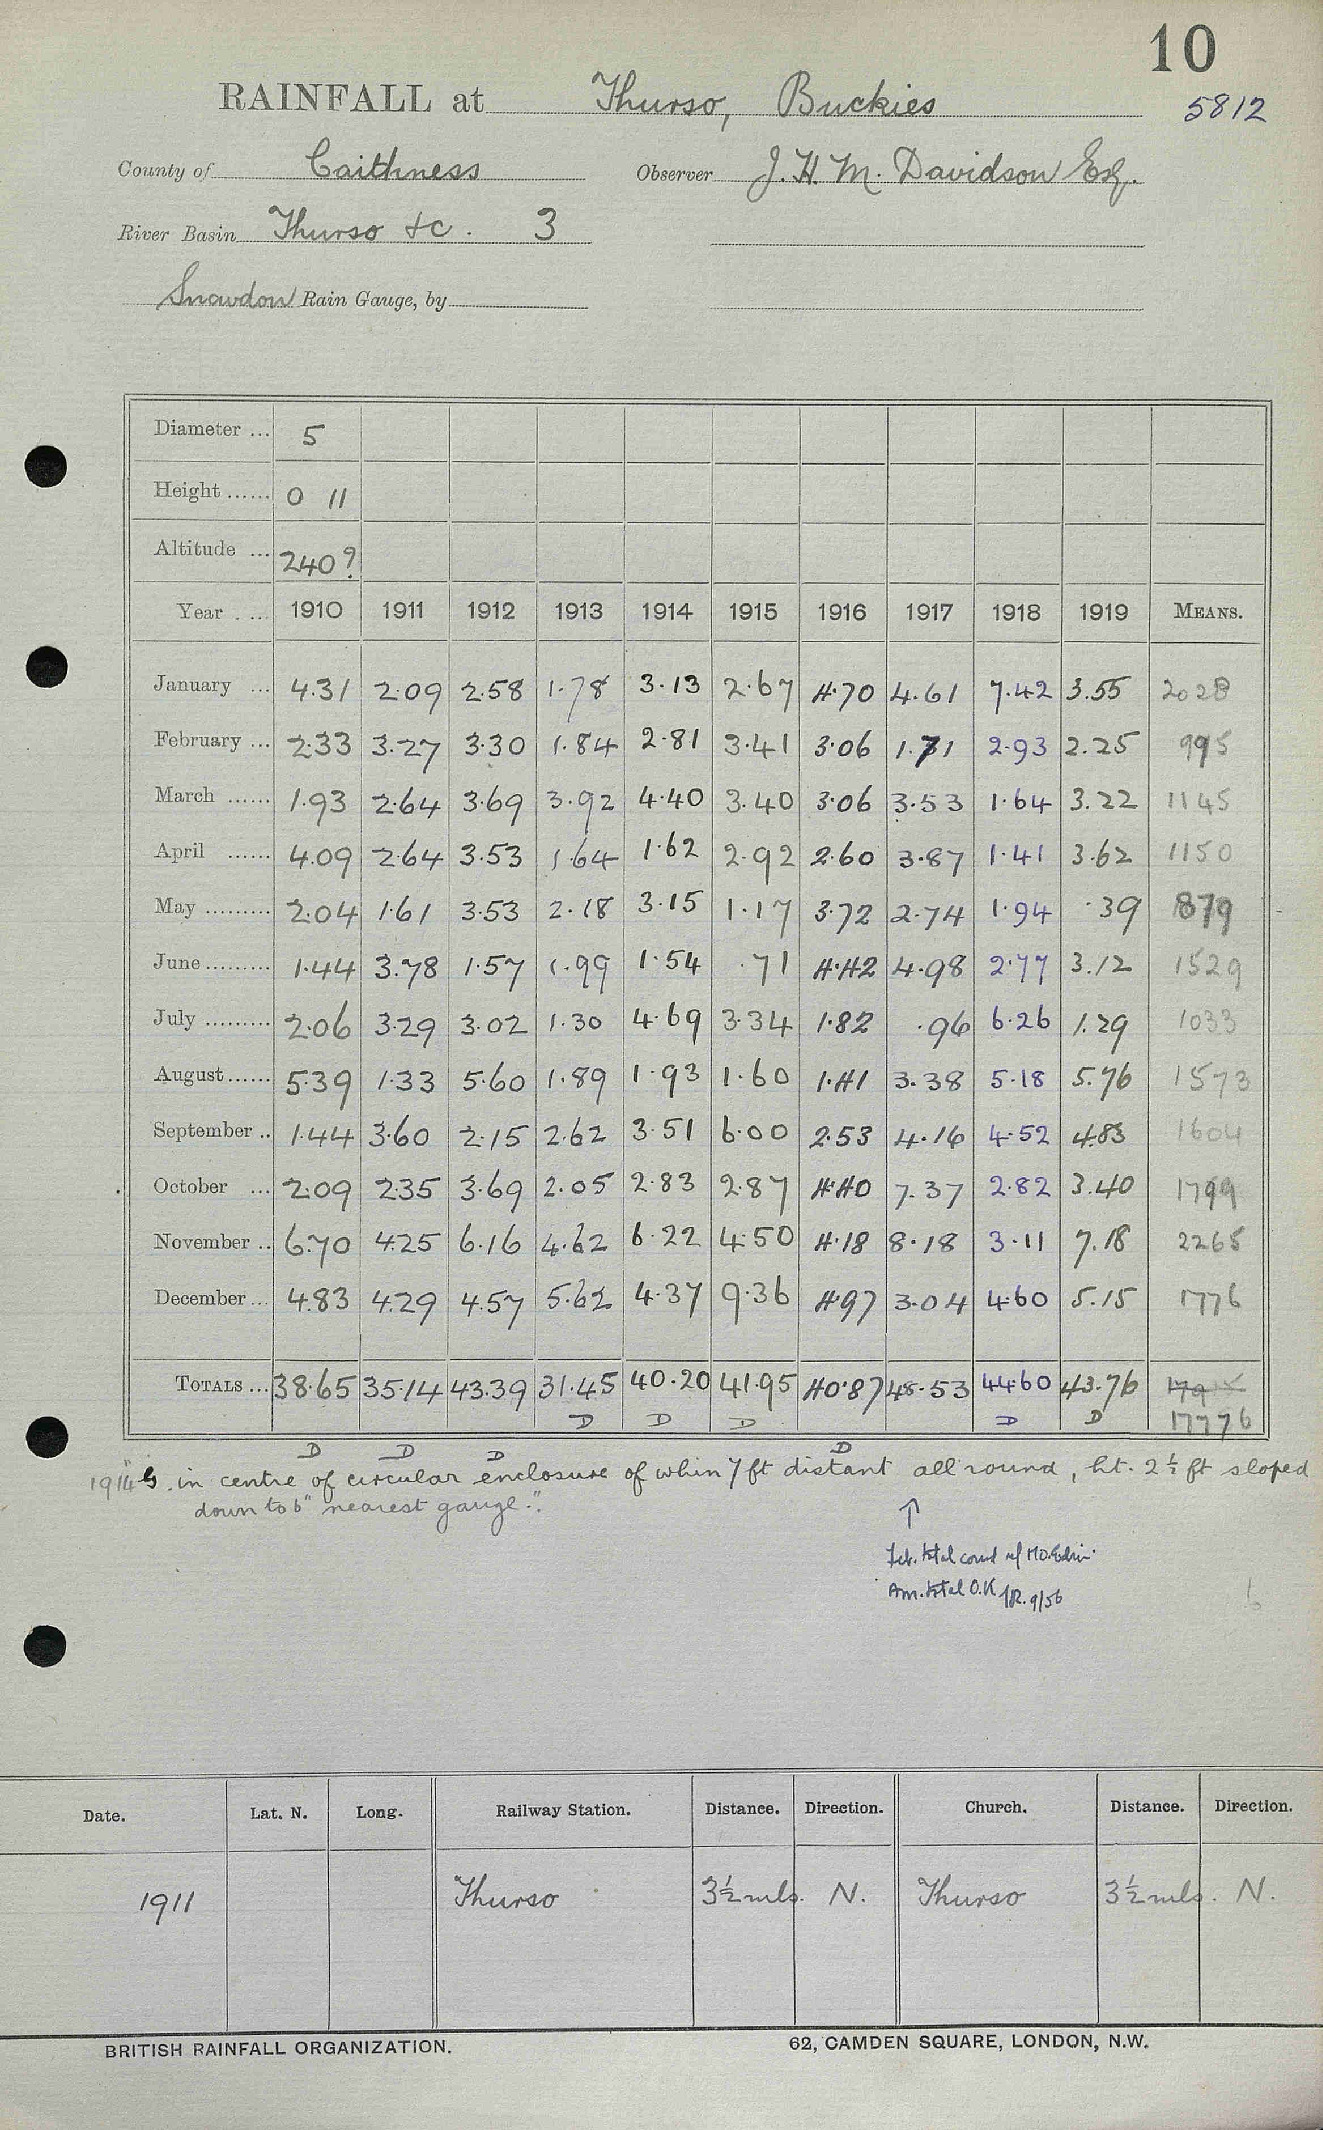 10
RAINFALL at Thurso, Buckies 5812
County of Caithness Observer J. H. M. Davidson Esq.
River Basin Thurso &c. 3
Snowdon Rain Gauge, by
Diameter ... 5
Height ...... 0 11
Altitude ... 240?
Year . ... 1910 1911 1912 1913 1914 1915 1916 1917 1918 1919 MEANS.
January ... 4.31 2.09 2.58 1.78 3.13 2.67 4.70 4.61 7.42 3.55 2028
February ... 2.33 3.27 3.30 1.84 2.81 3.41 3.06 1.71 2.93 2.25 995
March ...... 1.93 2.64 3.69 3.92 4.40 3.40 3.06 3.53 1.64 3.22 1145
April ...... 4.09 2.64 3.53 1.64 1.62 2.92 2.60 3.87 1.41 3.62 1150
May ......... 2.04 1.61 3.53 2.18 3.15 1.17 3.72 2.74 1.94 .39 879
June ......... 1.44 3.78 1.57 1.99 1.54 .71 4.42 4.98 2.77 3.12 1529
July ......... 2.06 3.29 3.02 1.30 4.69 3.34 1.82 .96 6.26 1.29 1033
August ...... 5.39 1.33 5.60 1.89 1.93 1.60 1.41 3.38 5.18 5.76 1573
September .. 1.44 3.60 2.15 2.62 3.51 6.00 2.53 4.16 4.52 4.83 1604
October ... 2.09 2.35 3.69 2.05 2.83 2.87 4.40 7.37 2.82 3.40 1799
November .. 6.70 4.25 6.16 4.62 6.22 4.50 4.18 8.18 3.11 7.18 2265
December ... 4.83 4.29 4.57 5.62 4.37 9.36 4.97 3.04 4.60 5.15 1776
TOTALS ... 38.65 35.14 43.39 31.45 40.20 41.95 40.87 48.53 44.60 43.76
D D D D D 17776
D D D D
1914 "G. in centre of circular enclosure of whin 7 ft distant all round, ht. 2½ ft sloped
down to 6" nearest gauge."
↑
Feb. total corrd M.O. Edin.
Ann. total O.K. 9/56
6
Date. Lat. N. Long. Railway Station. Distance. Direction. Church. Distance. Direction.
1911 Thurso 3½ mls. N. Thurso 3½ mls. N.
BRITISH RAINFALL ORGANIZATION. 62, CAMDEN SQUARE, LONDON, N.W.